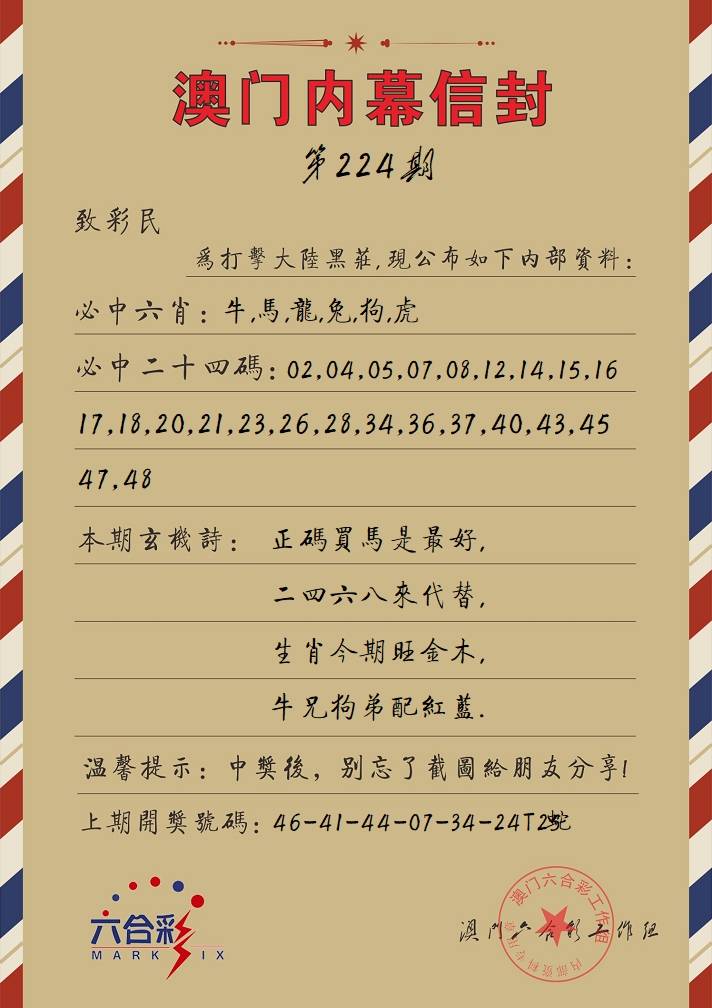 澳门内幕信封
第224期
致彩民
爲打擊大陸黑莊,現公布如下内部資料:
必中六肖:牛,馬,龍,兔,狗,虎
必中二十四碼:02,04,05,07,08,12,14,15,16
17,18,20,21,23,26,28,34,36,37,40,43,45
47,48
本期玄機詩: 正碼買馬是最好,
二四六八來代替,
生肖今期旺金木,
牛兄狗弟配紅藍.
温馨提示:中獎後,别忘了截圖給朋友分享!
上期開獎號碼:46-41-44-07-34-24T25蛇
六合彩
MARK SIX
澳门六合彩工作组
澳门六合彩工作组
内部资料专用章